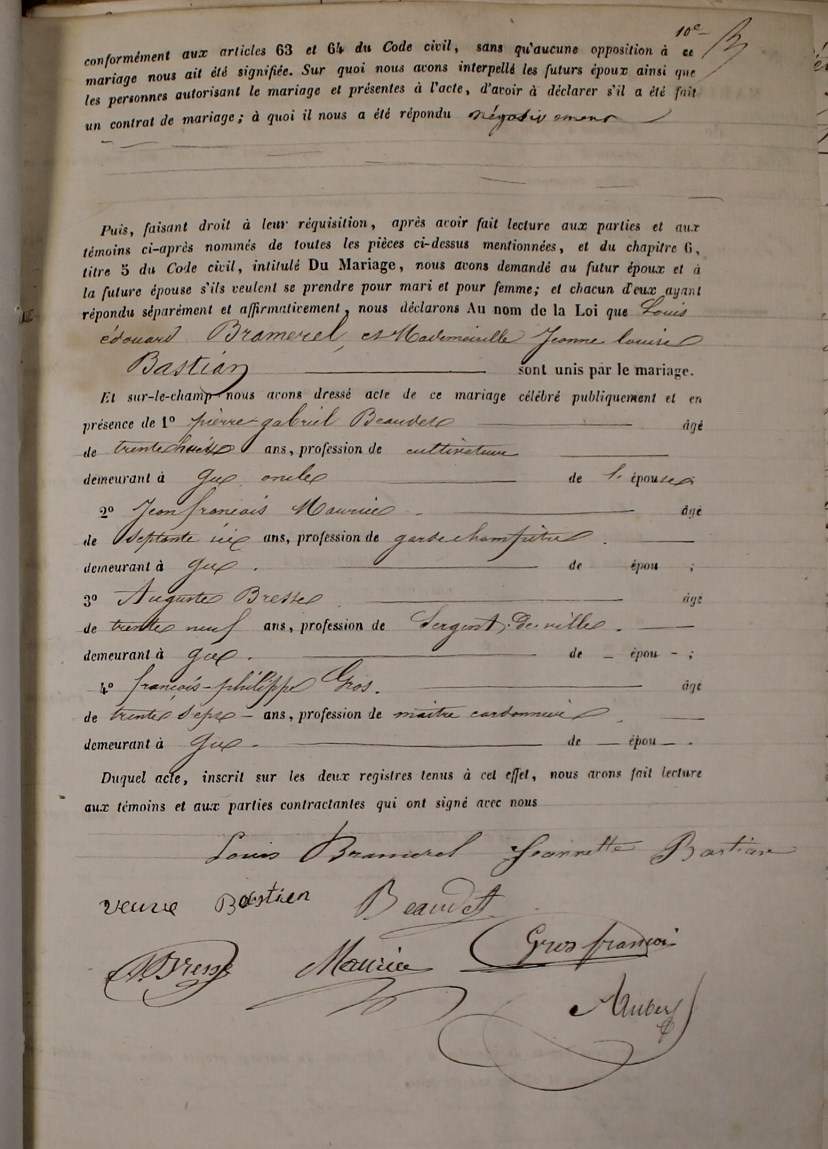 10e
conformément aux articles 63 et 64 du Code civil, sans qu'aucune opposition à ce
mariage nous ait été signifiée. Sur quoi nous avons interpellé les futurs époux ainsi que
les personnes autorisant le mariage et présentes à l'acte, d'avoir à déclarer s'il a été fait
un contrat de mariage; à quoi il nous a été répondu négativement
Puis, faisant droit à leur réquisition, après avoir fait lecture aux parties et aux
témoins ci-après nommés de toutes les pièces ci-dessus mentionnées, et du chapitre 6,
titre 5 du Code civil, intitulé Du Mariage, nous avons demandé au futur époux et à
la future épouse s'ils veulent se prendre pour mari et pour femme; et chacun d'eux ayant
répondu séparément et affirmativement, nous déclarons Au nom de la Loi que Louis
édouard Bramerel, et Mademoiselle Jeanne louise
Bastian sont unis par le mariage.
Et sur-le-champ nous avons dressé acte de ce mariage célébré publiquement et en
présence de 1° pierre gabriel Beaudet âgé
de trente huit ans, profession de cultivateur
demeurant à Gex oncle de l'épouse
2° Jean françois Maurice âgé
de Septante six ans, profession de garde champêtre
demeurant à Gex. de épou ;
3° Auguste Bresse âgé
de trente neuf ans, profession de Sergent de ville.
demeurant à Gex. de – épou - ;
4° françois-philippe Gros. âgé
de trente sept – ans, profession de maître cordonnier
demeurant à Gex - de — épou — .
Duquel acte, inscrit sur les deux registres tenus à cet effet, nous avons fait lecture
aux témoins et aux parties contractantes qui ont signé avec nous
Louis Bramerel Jeannette Bastian
veuve Bastien Beaudet
ABresse Maurice Gros françois